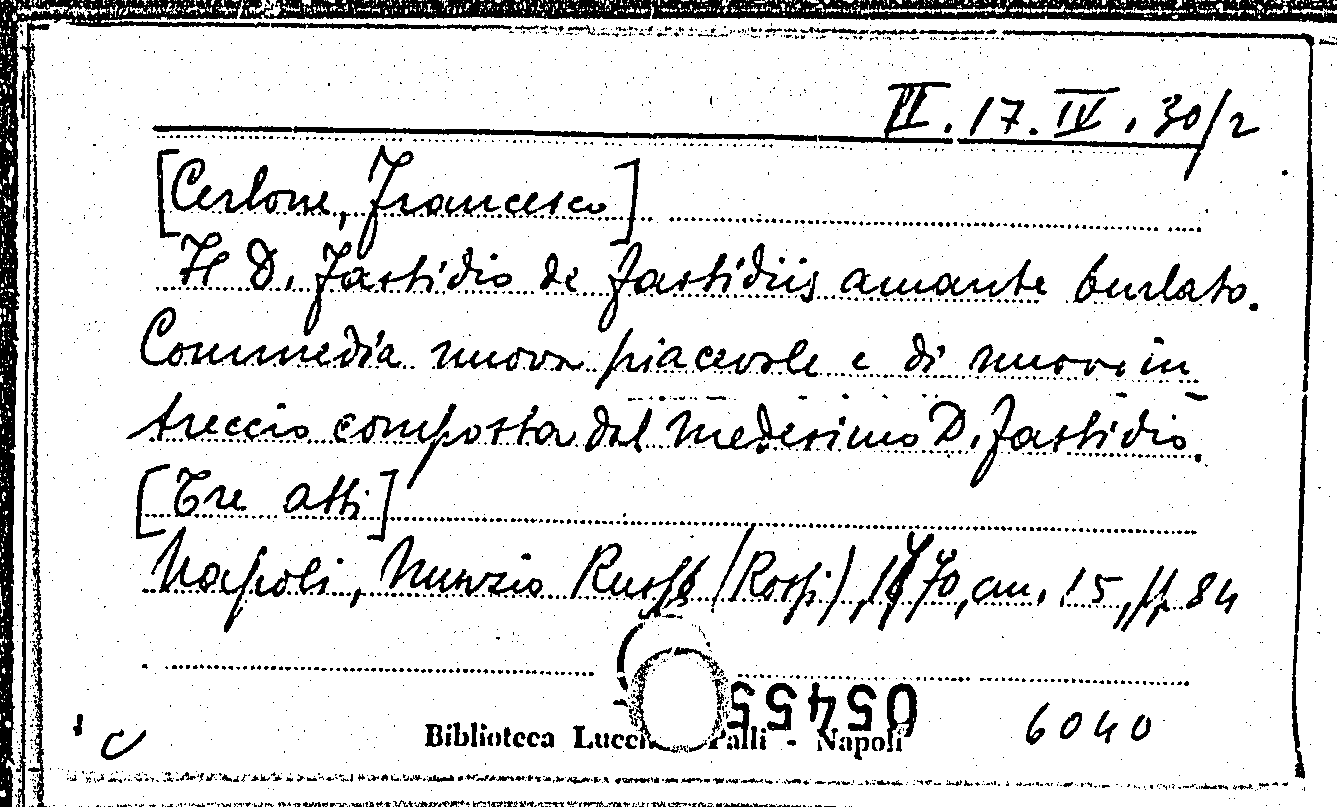 II. 17. IV. 30/2
[Cerlone, Francesco]
Il D. Fastidio de fastidiis amante burlato.
Commedia nuova piacevole e di nuovo in
treccio composta dal medesimo D. Fastidio.
[Tre atti]
Napoli, Nunzio (Rossi), 1770, cm. 15, ff. 84
05455
Biblioteca Lucch Palli - Napoli
6040